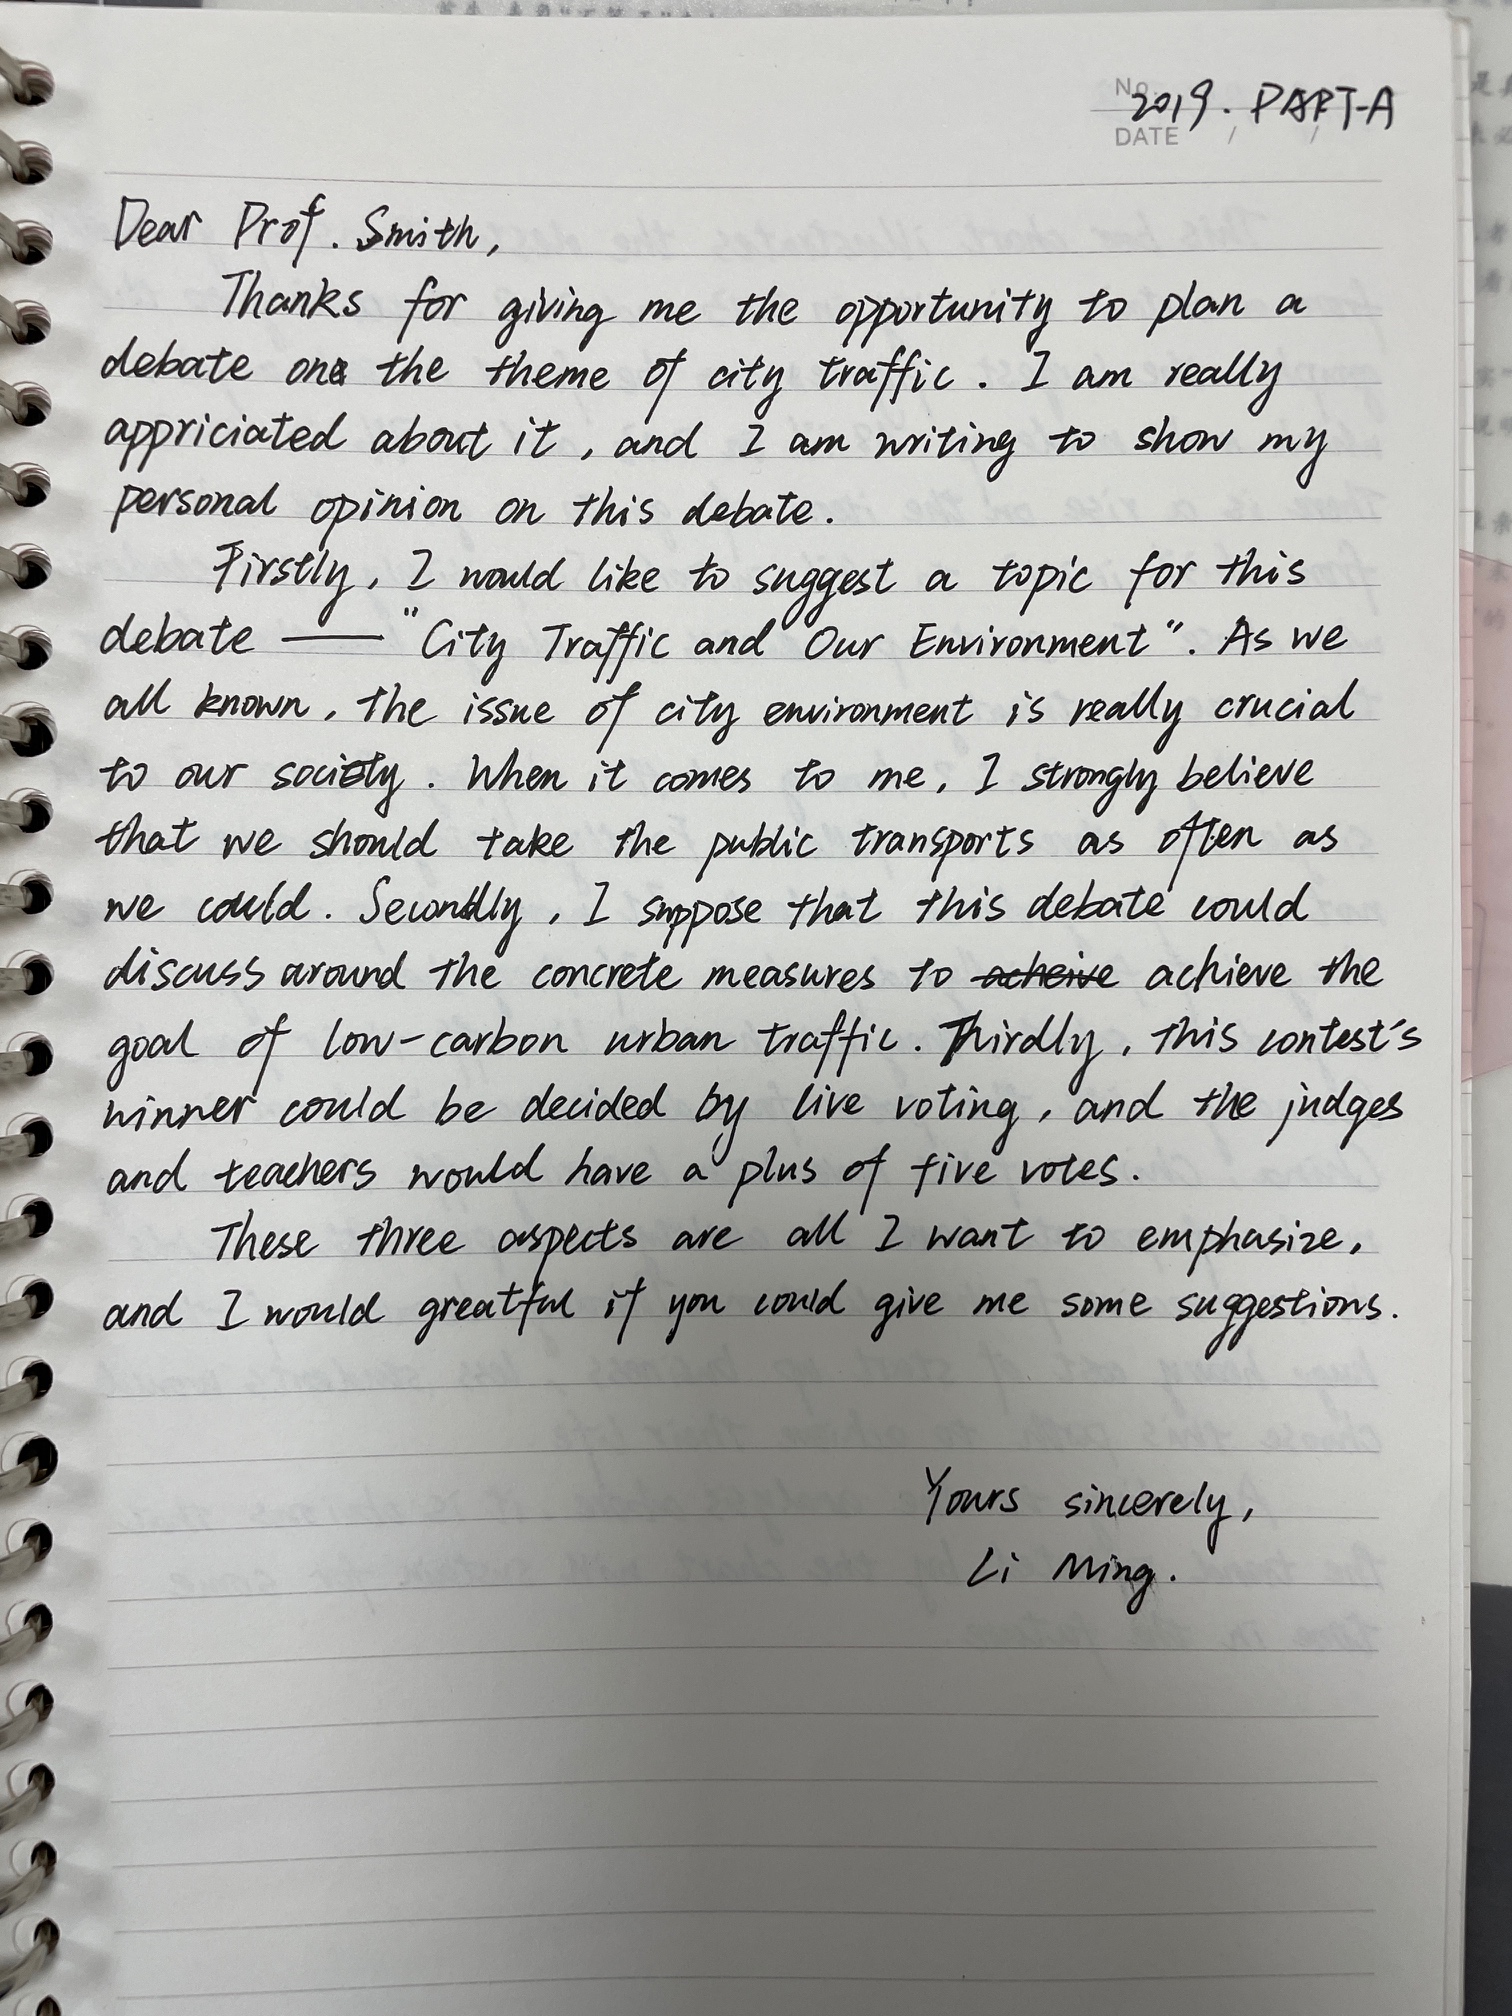 No.
2019. PART-A
DATE / /
Dear Prof. Smith,
Thanks for giving me the opportunity to plan a
debate on the theme of city traffic. I am really
appriciated about it, and I am writing to show my
personal opinion on this debate.
Firstly, I would like to suggest a topic for this
debate —— "City Traffic and Our Environment". As we
all known, the issue of city environment is really crucial
to our society. When it comes to me, I strongly believe
that we should take the public transports as often as
we could. Secondly, I suppose that this debate could
discuss around the concrete measures to acheive achieve the
goal of low-carbon urban traffic. Thirdly, this contest's
winner could be decided by live voting, and the judges
and teachers would have a plus of five votes.
These three aspects are all I want to emphasize,
and I would greatful if you could give me some suggestions.
Yours sincerely,
Li Ming.